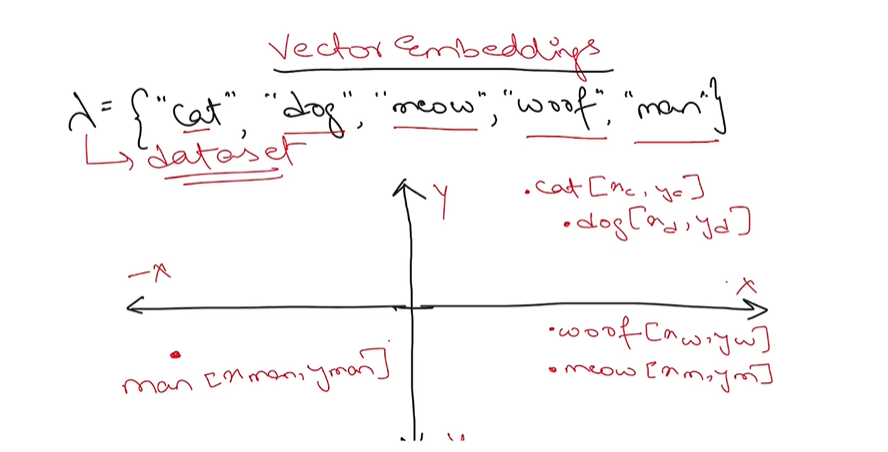 Vector Embeddings
λ = {"cat", "dog", "meow", "woof", "man"}
dataset
y
.cat [xc, yc]
.dog [xd, yd]
-x
x
.woof [xw, yw]
man [xman, yman]
.meow [xm, ym]